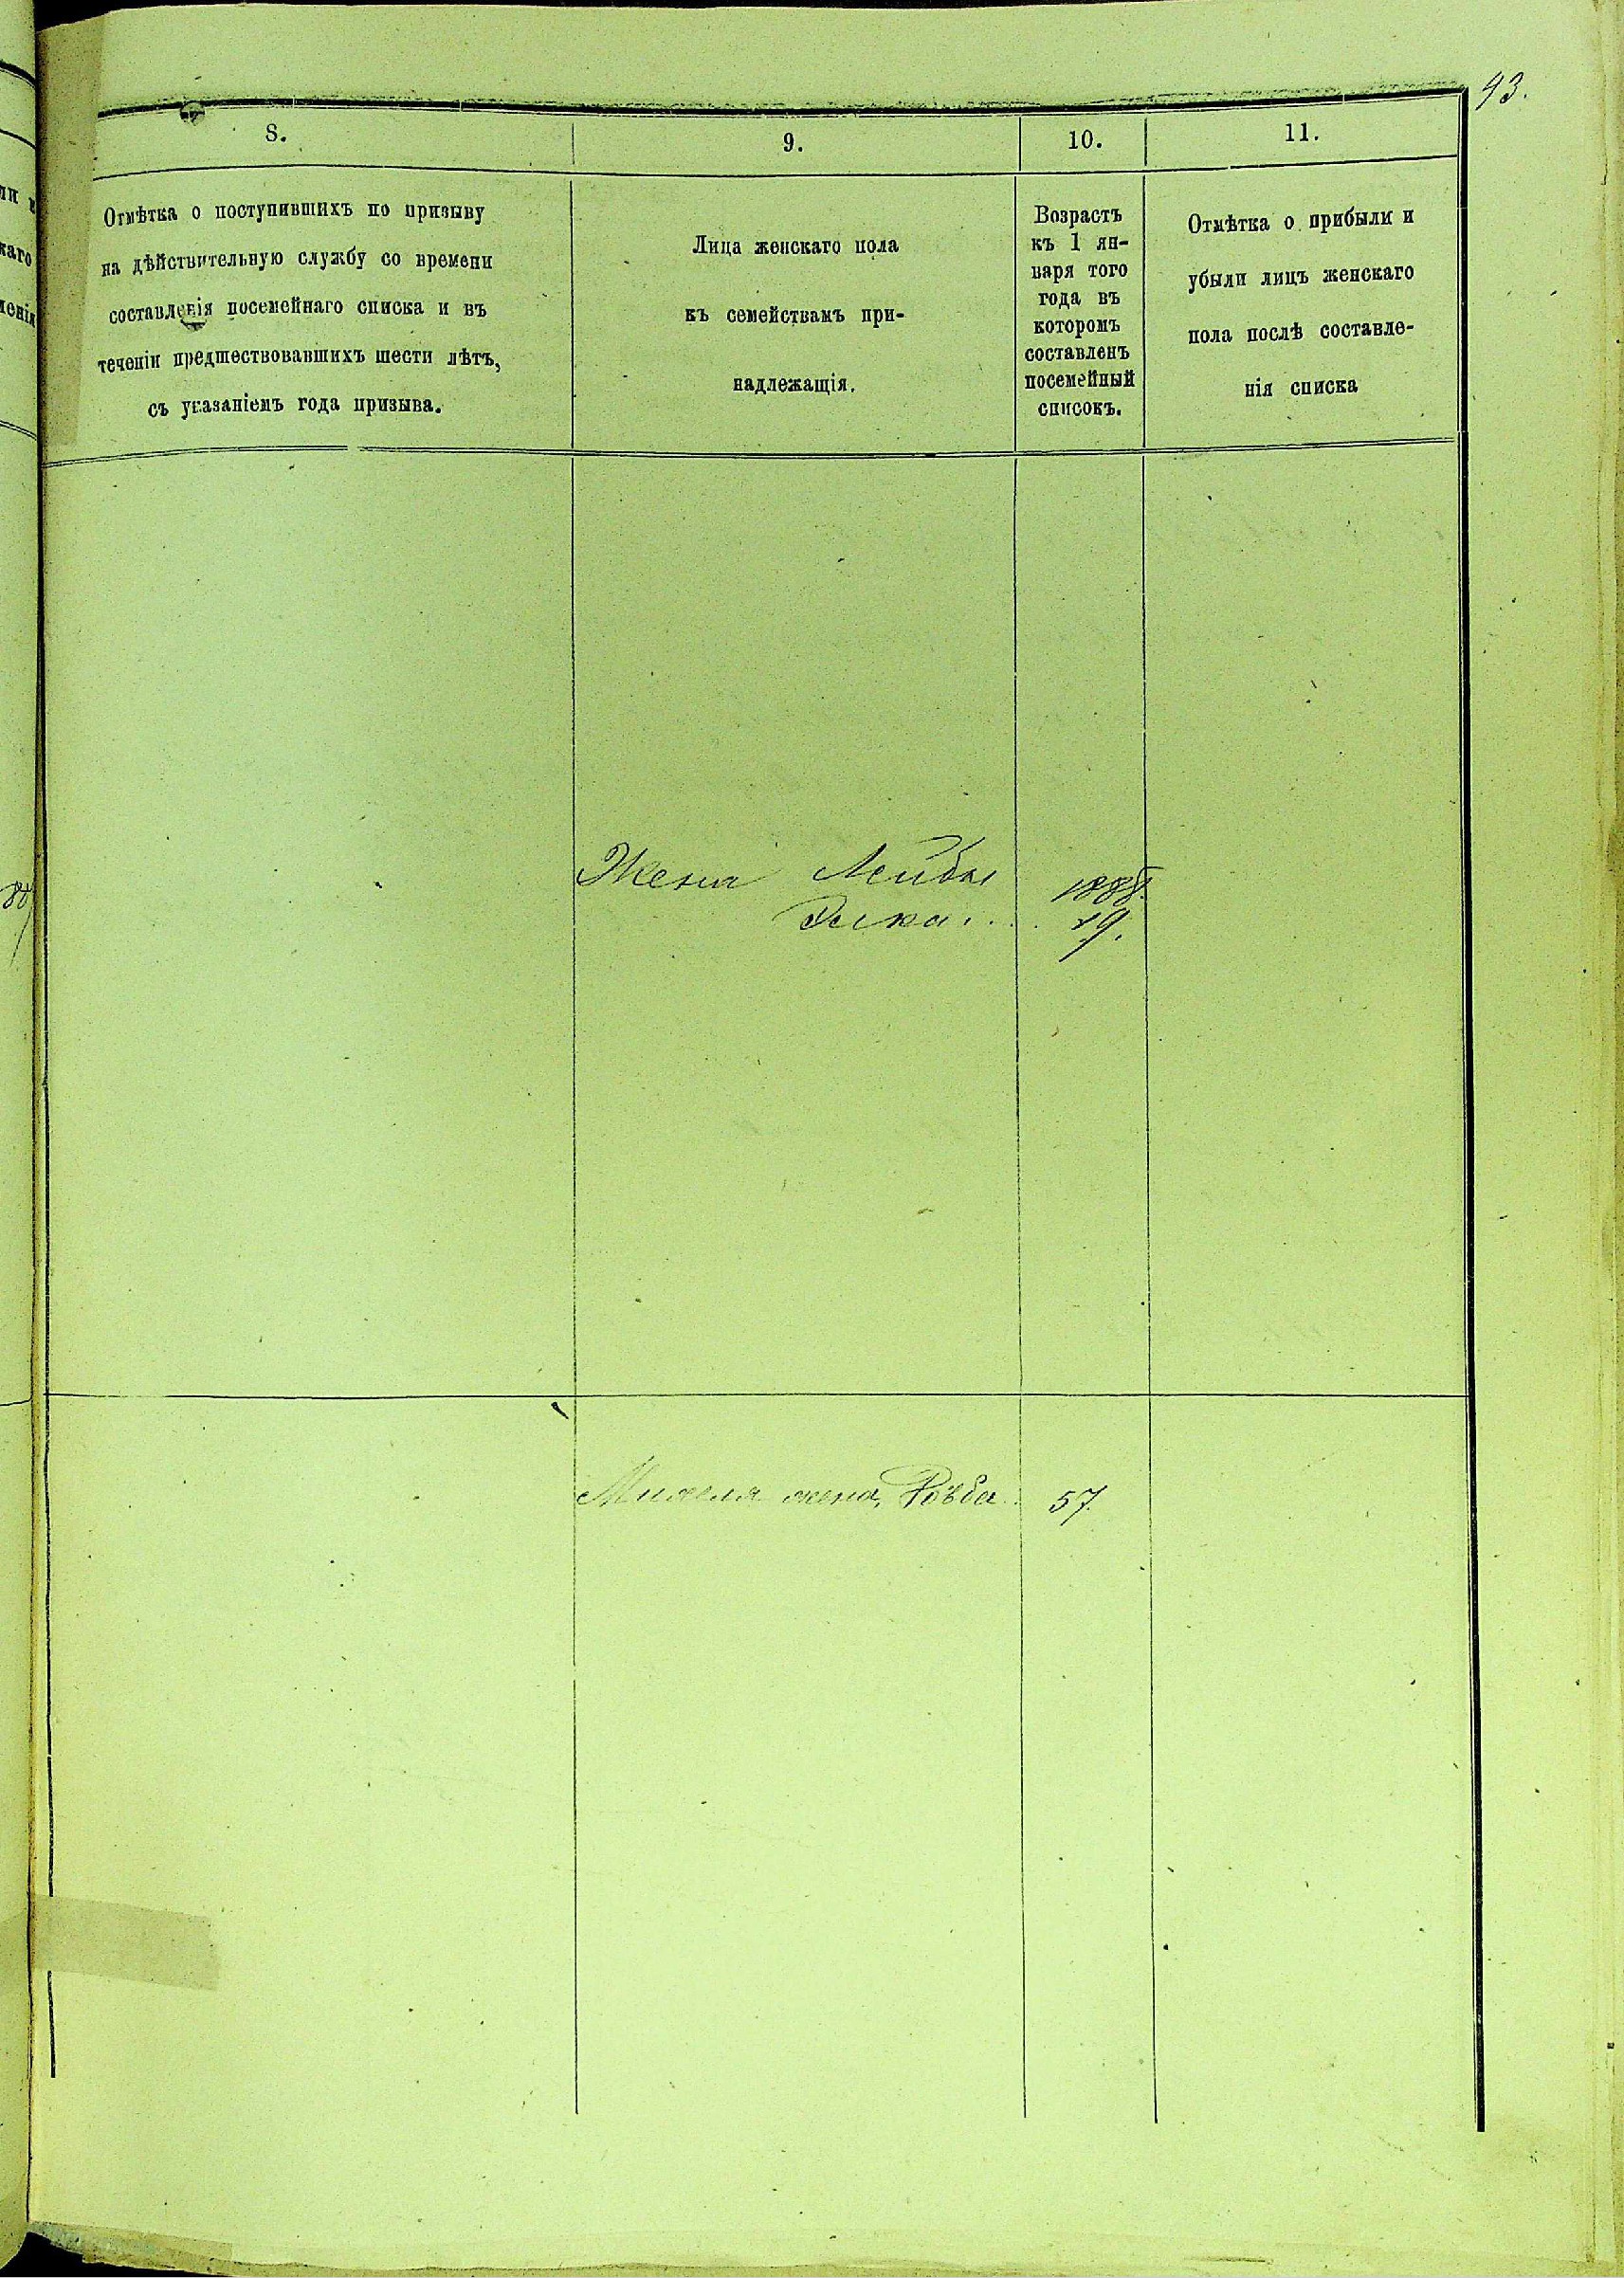 93.
8.
9.
10.
11.
Отмѣтка о поступившихъ по призыву
на дѣйствительную службу со времени
составленія посемейнаго списка и въ
теченіи предшествовавшихъ шести лѣтъ,
съ указаніемъ года призыва.
Лица женскаго пола
къ семействамъ при-
надлежащія.
Возрастъ
къ 1 ян-
варя того
года въ
которомъ
составленъ
посемейный
списокъ.
Отмѣтка о прибыли и
убыли лицъ женскаго
пола послѣ составле-
нія списка
Жена Лейбы
1888.
19.
жена,
57.